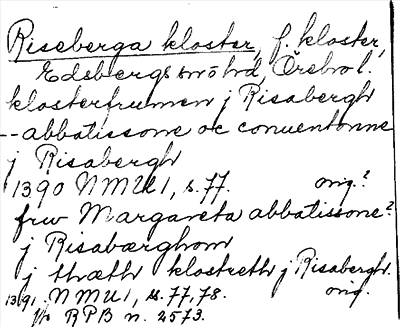 Riseberga kloster, f. kloster,
Edsbergs sn o hd, Örebro l.
klosterfrumen j Risabergh
-- abbatissone oc conuentonne
j Risabergh
1390 NMU1, s. 77. orig.?
frw Margareta abbatissone?
j Risabærghom
j thæth klostreth j Risabergh.
1391 NMU1, s. 77, 78. orig.
RPB n. 2573.